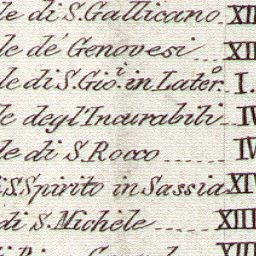 le di S. Gallicano. XII
le de' Genovesi XII
le di S. Gio. in Latero. I.
le degl'Incurabili IV
le di S. Rocco IV
di S. Spirito in Sassia XIV
di S. Michele XIII
XIII